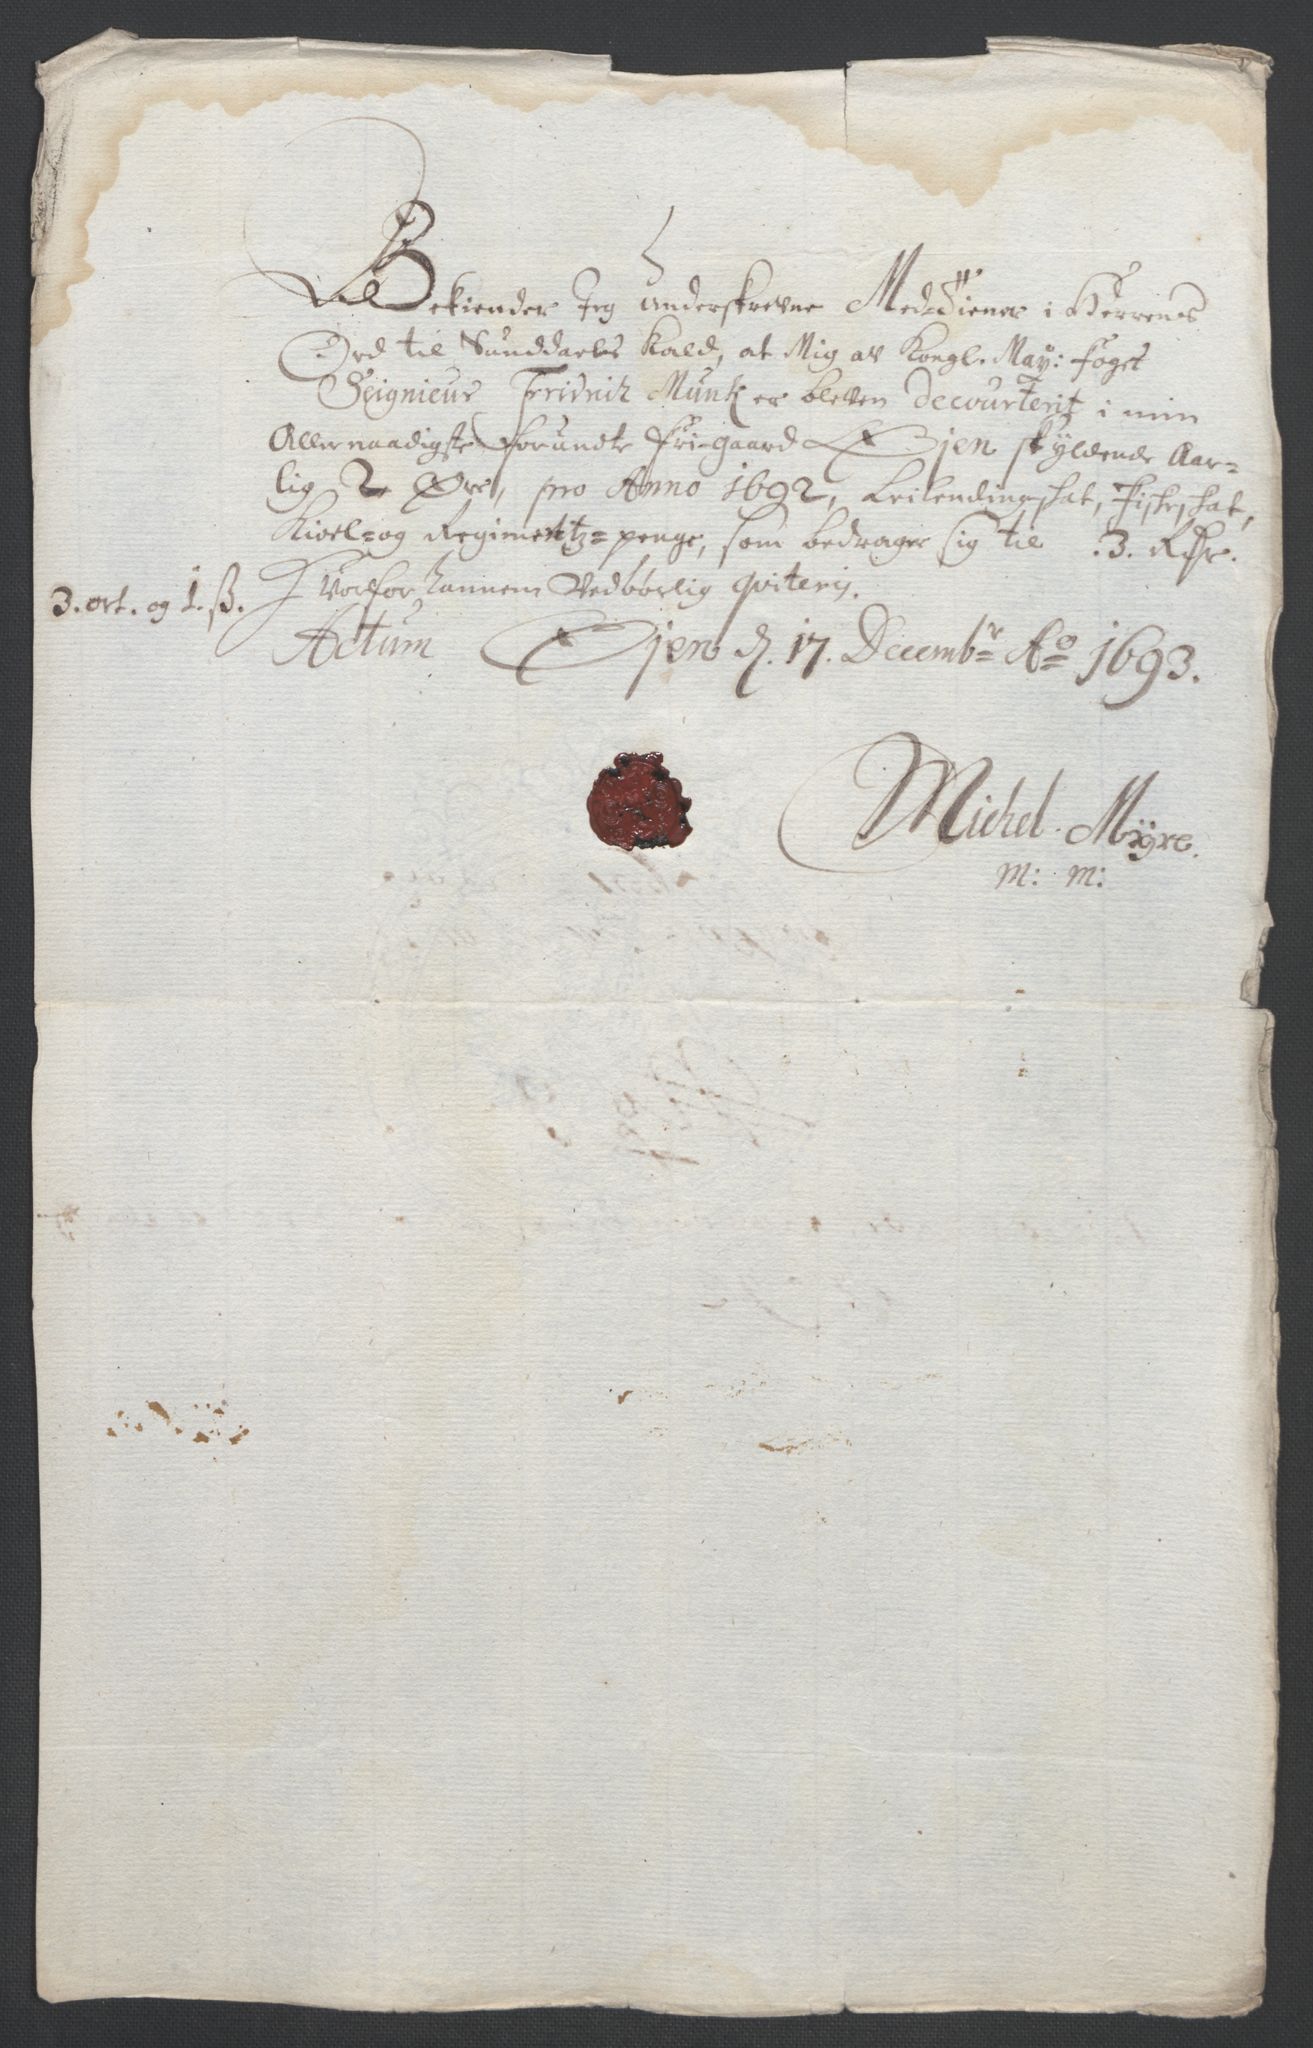 Bekiender Jeg underskrevne Med-Tiener i Herrens
Ord til Sunddaels Kald, at Mig av Kongl. May: foget
Seignieur Fridrik Munk er bleven decourterit i min
Allernaadigste forundte fri-gaard Øjen skyldende Aar=
lig 2 Øre, pro Anno 1692, Leilendingskat, fiskeskat,
Kioel=og Regimentz=penge, som bedrager sig til .3. Rdr.
3. ort. og 1. ß. Hvorfor hannem Vedbørlig qviteris.
Actum Øjen d. 17. Decembr Ao 1693.
Michel Mÿre.
m: m: